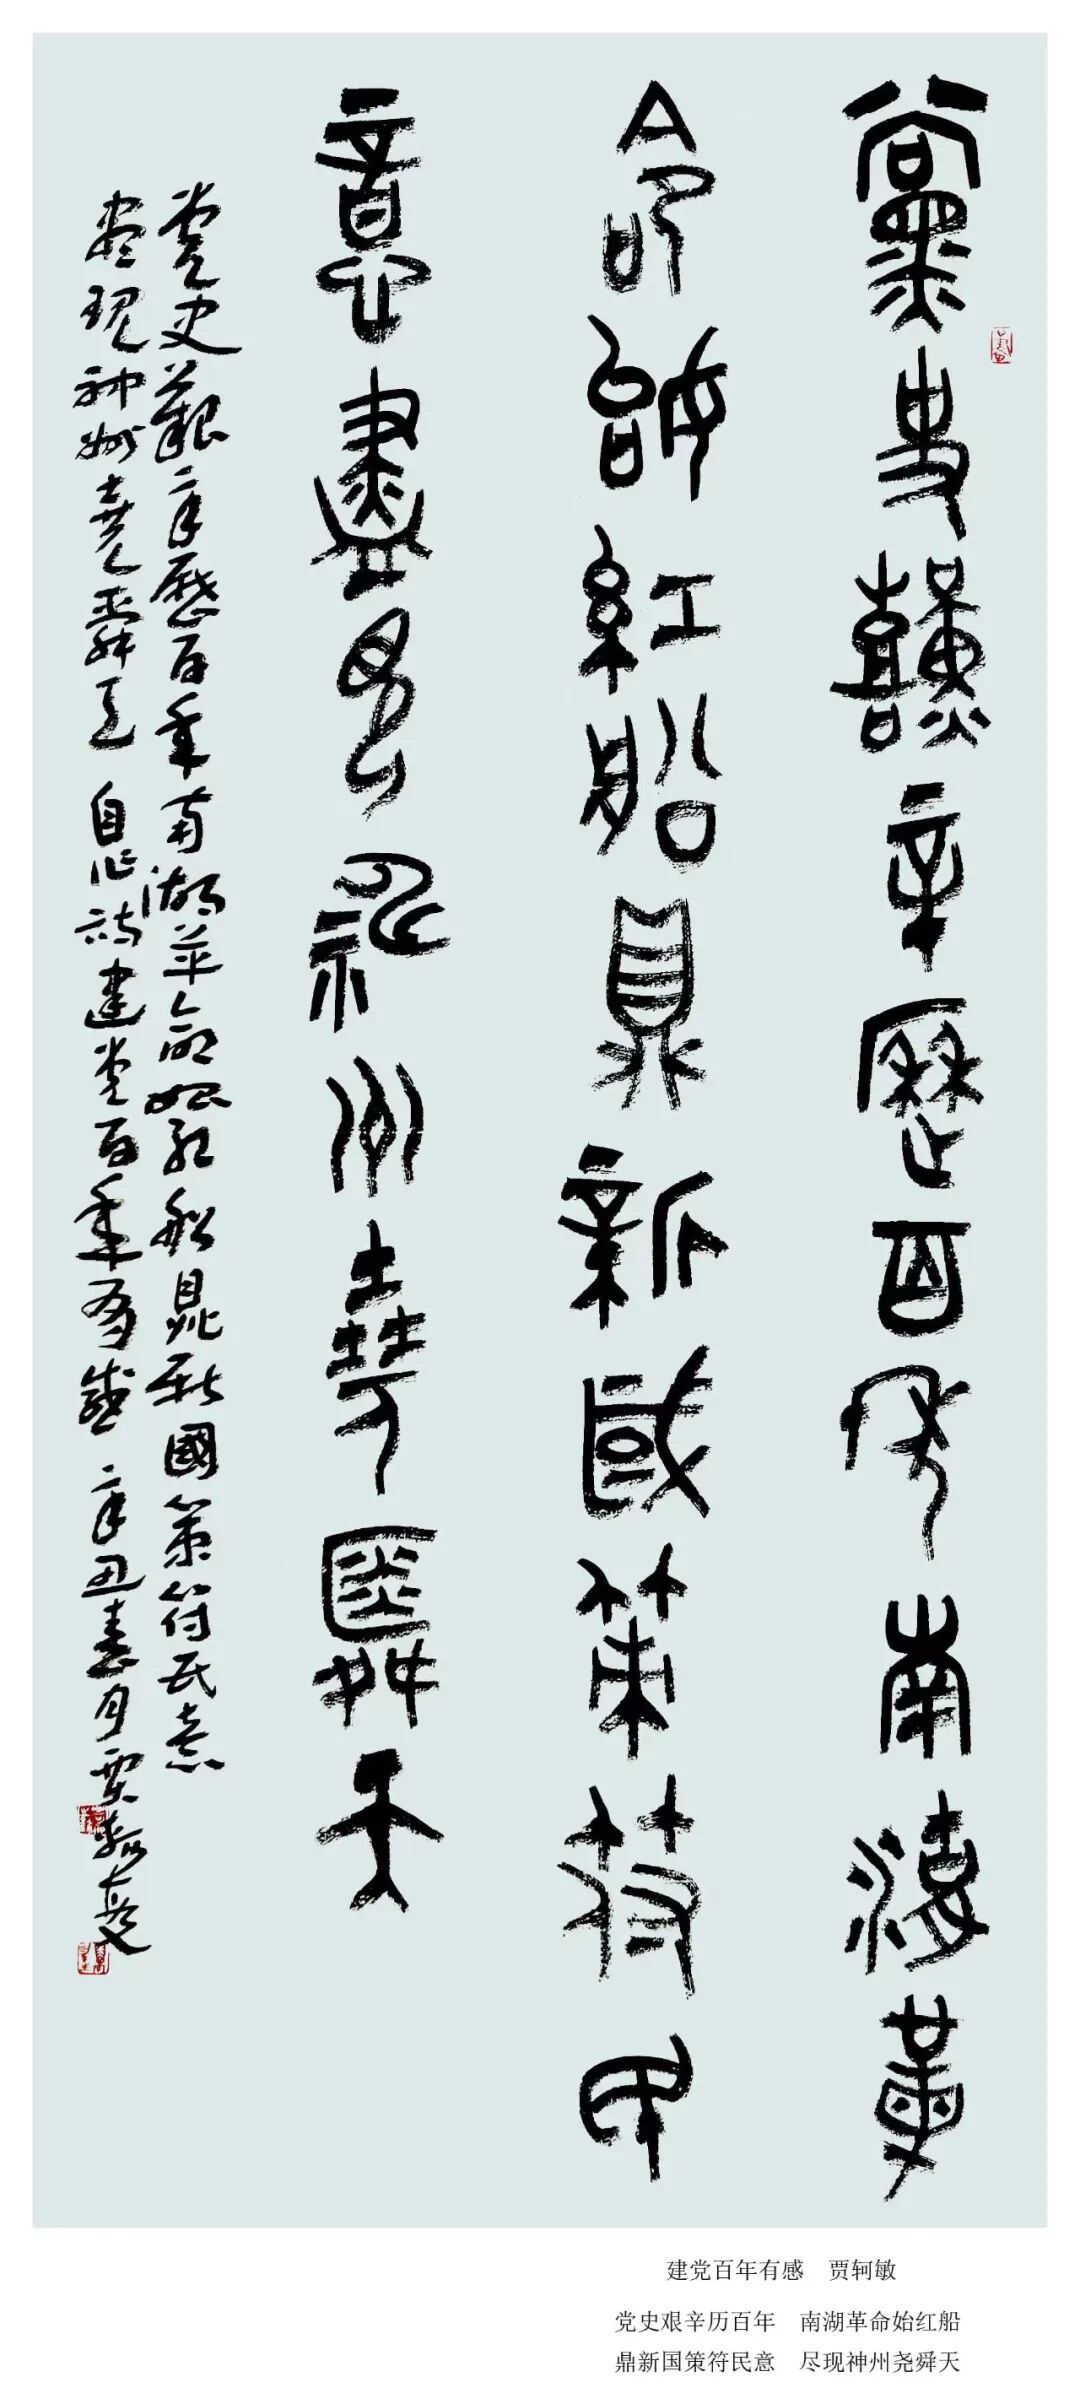 黨史艱辛歷百年南湖革
命始紅船鼎新國策符民
意盡見神州堯舜天
党史艱辛歷百年南湖革命始紅船鼎新國策符民意
盡現神州堯舜天 自作詩建党百年有感 辛丑春月賈軻敏
建党百年有感 贾轲敏
党史艰辛历百年 南湖革命始红船
鼎新国策符民意 尽现神州尧舜天